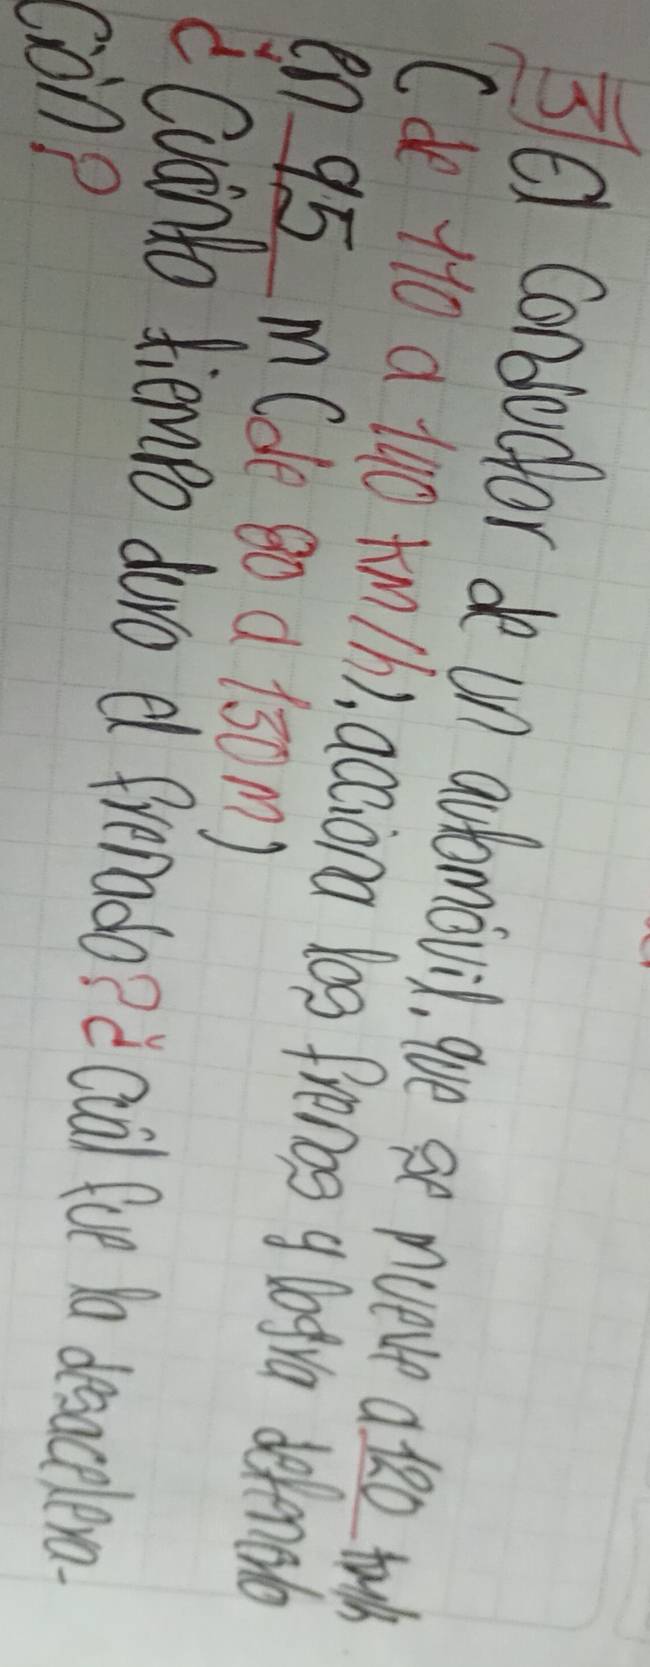 3) El conductor de un automóvil, que se mueve a 120 km/h
(de 110 a 140 km/h), acciona los frenos y logra detenerlo
en 95 m (de 80 a 130 m)
¿Cuánto tiempo duro el frenado? ¿Cuál fue la desacelera-
ción?